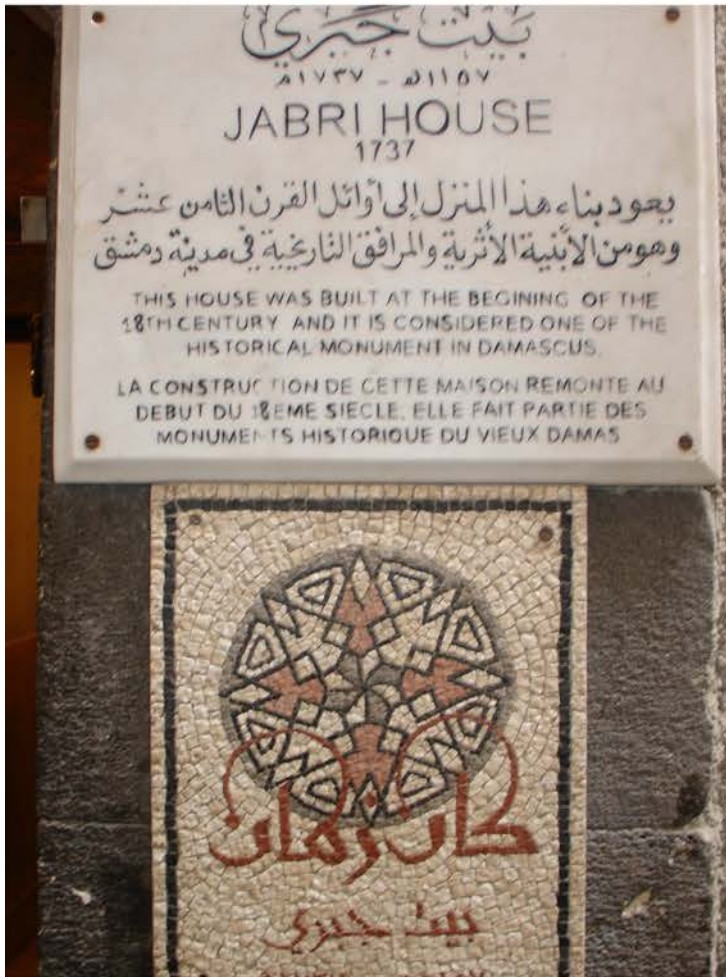 بيت جبري
١١٥٧هـ - ١٧٣٧م
JABRI HOUSE
1737
يعود بناء هذا المنزل إلى أوائل القرن الثامن عشر
وهو من الأبنية الأثرية والمرافق التاريخية في مدينة دمشق
THIS HOUSE WAS BUILT AT THE BEGINING OF THE
18TH CENTURY AND IT IS CONSIDERED ONE OF THE
HISTORICAL MONUMENT IN DAMASCUS.
LA CONSTRUCTION DE CETTE MAISON REMONTE AU
DEBUT DU 18EME SIECLE. ELLE FAIT PARTIE DES
MONUMENTS HISTORIQUE DU VIEUX DAMAS
كان زمان
بيت جبري